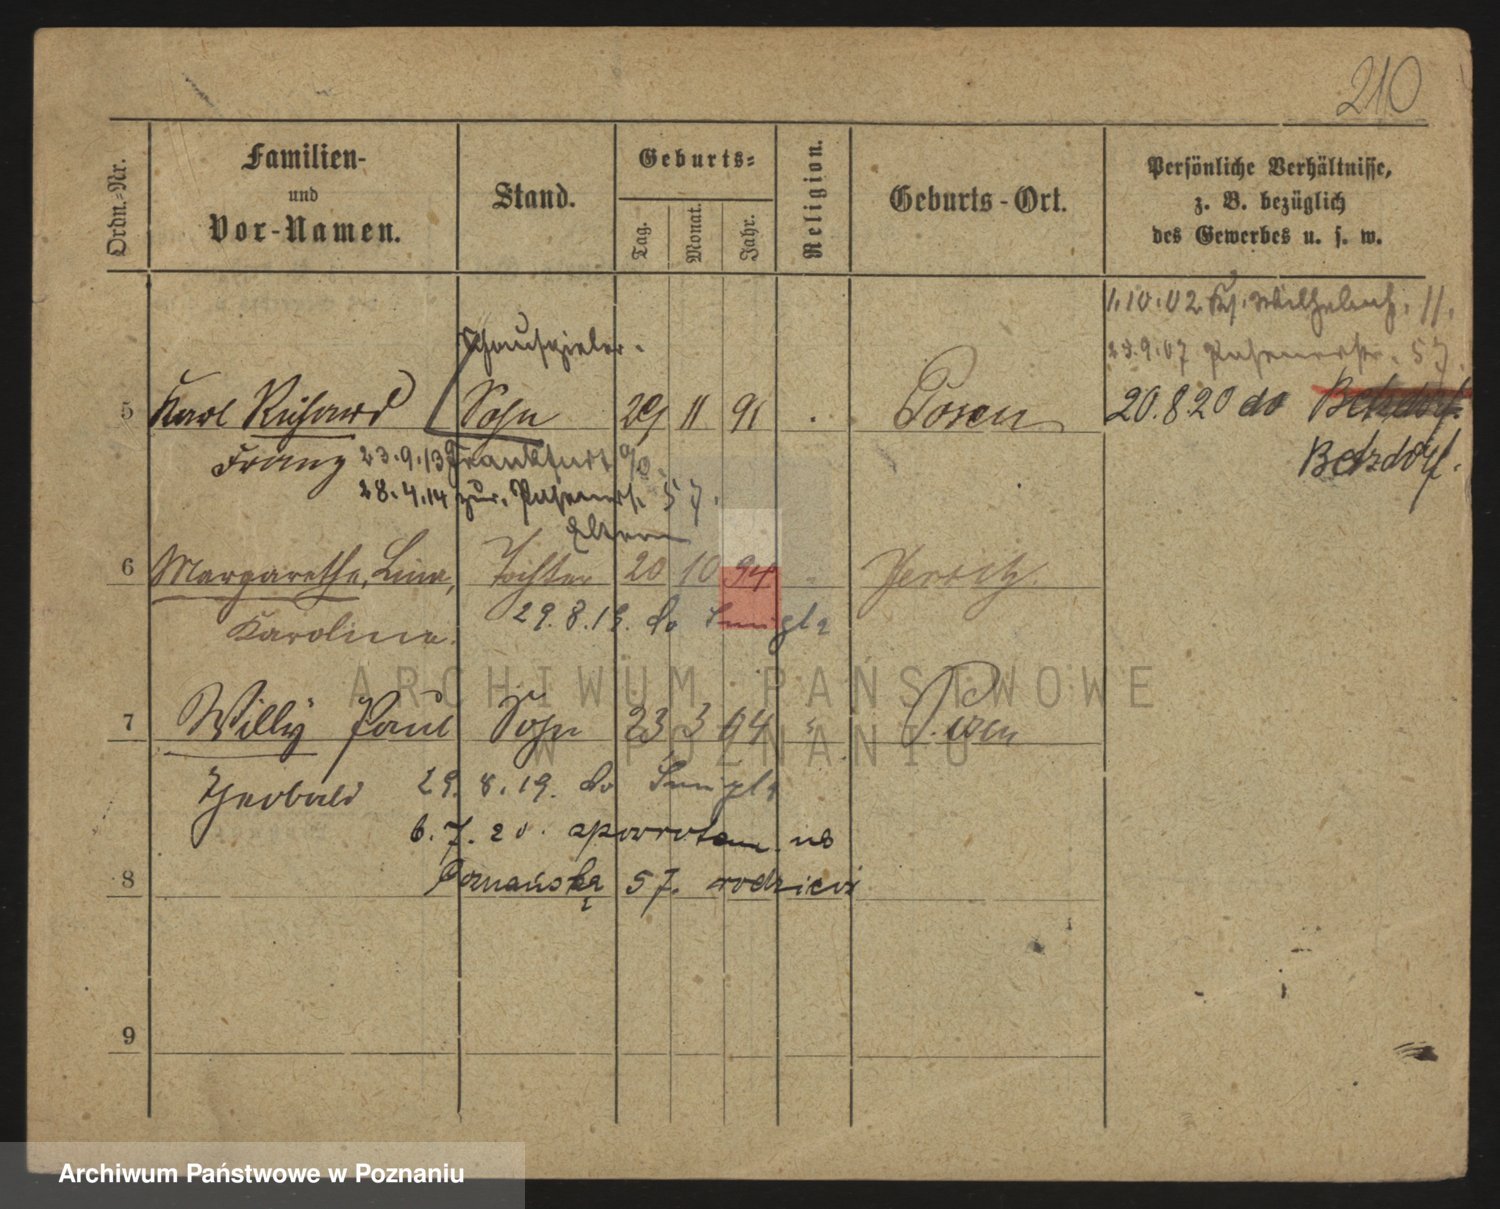 210
Ordn.-Nr.
Familien-
und
Vor-Namen.
Stand.
Geburts-
Tag.
Monat.
Jahr.
Religion.
Geburts-Ort.
Persönliche Verhältnisse,
z. B. bezüglich
des Gewerbes u. s. w.
1.10.02. 11.
23.9.07 57.
Schauspieler.
5 Karl Richard Sohn 29 11 91 . Posen 20.8.20 do Betzdorf
Franz 23.9.13 Frankfurt a/O. Betzdorf.
28.4.14 zur. 57.
Eltern
6 Margarethe, Lina, Tochter 20 10 94 " Jersitz
Karoline. 29.8.19. do Śmigla
7 Willy Paul Sohn 23 3 04 " Posen
Theobald 29.8.19. do Śmigla
6.7.20. zpowrotem na
8 Poznańską 57. rodzice
9
ARCHIWUM PAŃSTWOWE
W POZNANIU
Archiwum Państwowe w Poznaniu